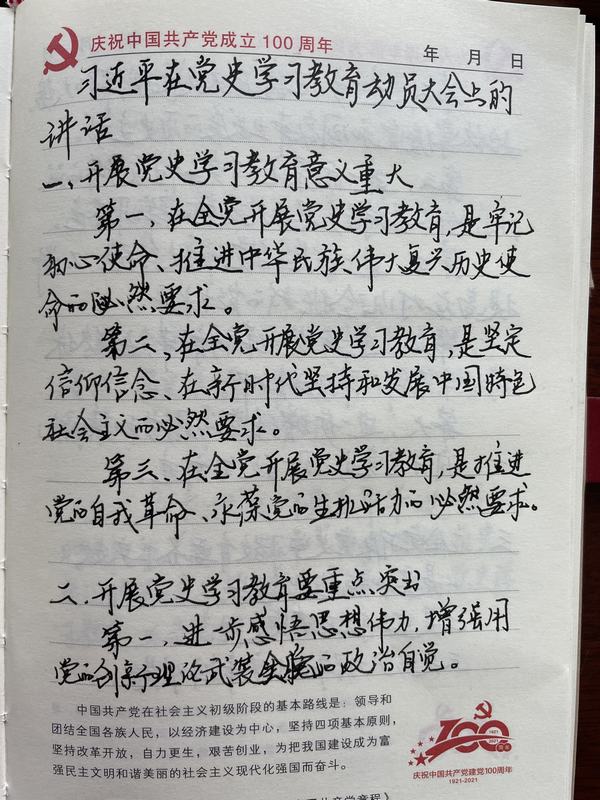 庆祝中国共产党成立100周年
年 月 日
习近平在党史学习教育动员大会上的
讲话
一、开展党史学习教育意义重大
第一,在全党开展党史学习教育,是牢记
初心使命、推进中华民族伟大复兴历史使
命的必然要求。
第二、在全党开展党史学习教育,是坚定
信仰信念、在新时代坚持和发展中国特色
社会主义的必然要求。
第三、在全党开展党史学习教育,是推进
党的自我革命、永葆党的生机活力的必然要求。
二、开展党史学习教育要重点突出
第一,进一步感悟思想伟力,增强用
党的创新理论武装全党的政治自觉。
中国共产党在社会主义初级阶段的基本路线是:领导和
团结全国各族人民,以经济建设为中心,坚持四项基本原则,
坚持改革开放,自力更生,艰苦创业,为把我国建设成为富
强民主文明和谐美丽的社会主义现代化强国而奋斗。
100
1921
2021
周年
庆祝中国共产党建党100周年
1921-2021
中国共产党章程》